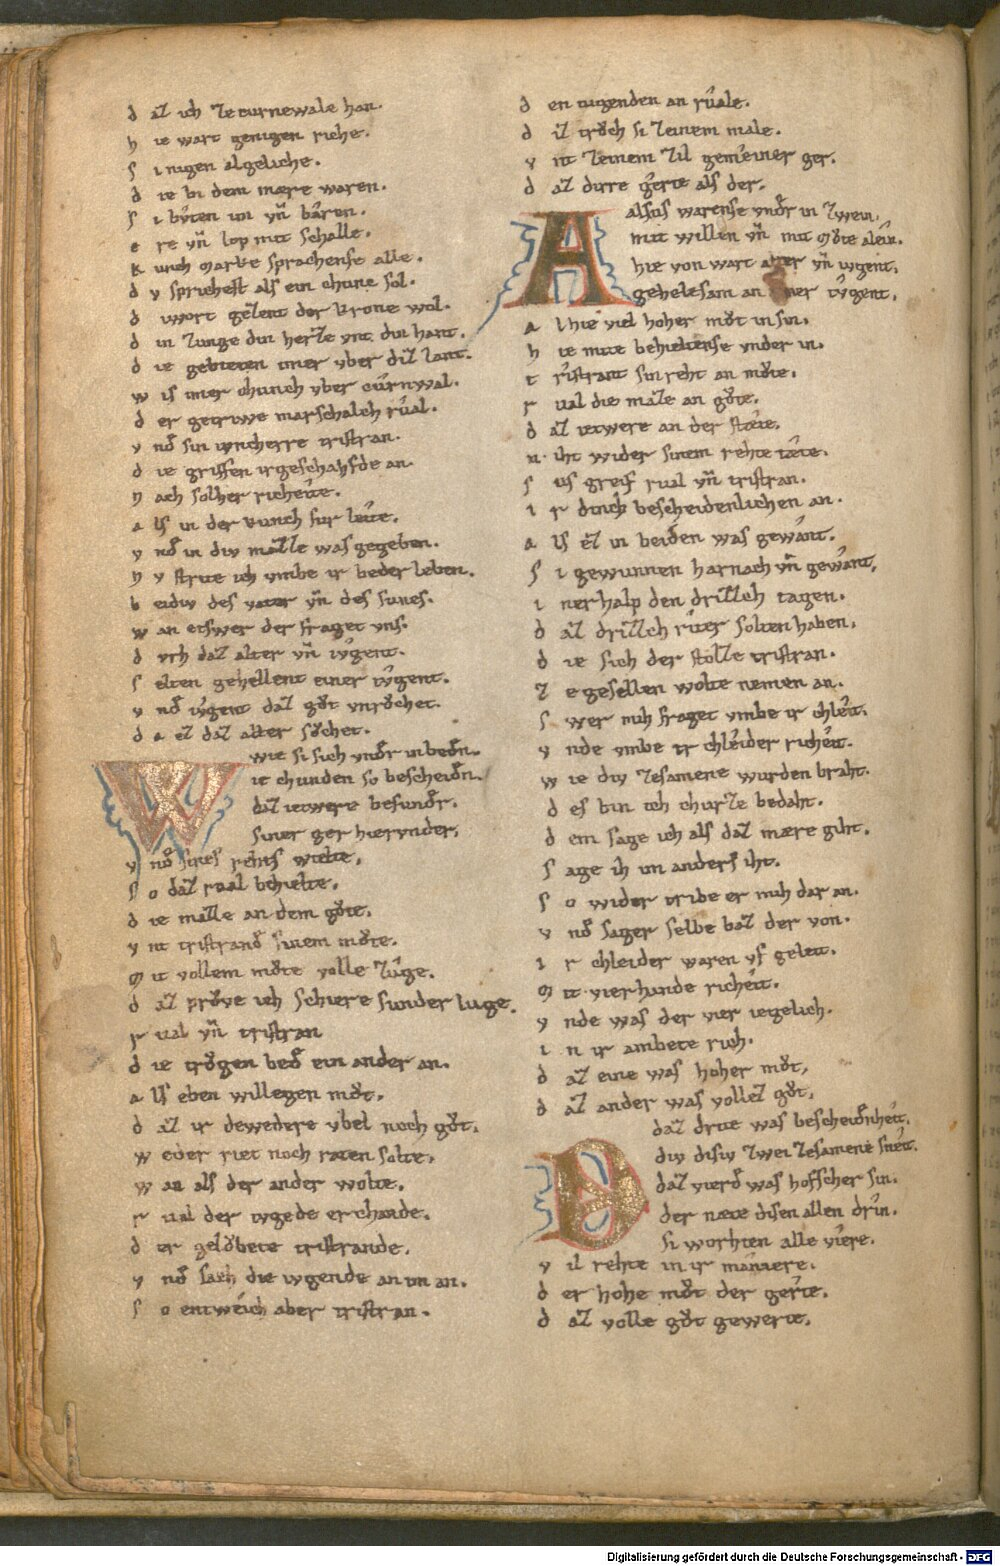 d aꝫ ich ze curnewale han.
h ie wart genigen riche.
ſ i nigen algeliche.
d ie bi dem mære waren.
ſ i bv̂ten im vn̄ bâren.
e re vn̄ lop mit ſchalle.
k unich marke ſprachenſe alle.
d v ſpricheſt alſ ein chunc ſol.
d iu wort gezêent der krone wol.
d in zunge din herze vnt din hant.
d ie gebieten imer vber diz lant.
w iſ imer chunich vber cûrnwal.
d er getriwe marſchalch rûal.
v nd ſin ivncherre triſtran.
d ie griffen ir geſchahfde an.
n ach ſolher richêite.
a lſ in der kunch fur lêite.
v nd in div mazze waſ gegeben.
n v ſtrite ich vmbe ir beder leben.
b eidiv des vater vn̄ des ſunes.
w an etſwer der fraget vnſ.
d vrh daz alter vn̄ ivgent.
ſ elten gehellent einer tvgent.
v nd ivgent daz gůt vnrůchet.
d a ez daz alter ſůchet.
W wie ſi ſich vndr in bedn.
ie chunden ſo beſcheidn.
daz ietwere beſundr.
ſiner ger hier vnder,
v nd ſines rehts wielte,
ſ o daz rual behielte.
d ie mazze an dem gůte,
v nt triſtrand ſinem můte.
m it vollem můte volle zûge.
d az průve ich ſchiere ſunder luge.
r ual vn̄ triſtran
d ie trůgen bed ein ander an.
a lſ eben willegen můt.
d az ir dewedere vbel noch gůt,
w eder riet noch raten ſolte,
w an alſ der ander wolte.
r ual der ivgede erchande.
d er gelůbete triſtrande.
v nd ſach die ivgende an im an.
ſ o entwêich aber triſtran.
d en tugenden an rûale.
d iz trůch ſi zeinem male.
v nt zeinem zil gemêiner ger.
d az dirre gerte alſ der.
A alſus warenſe vndr in zwein,
mit willen vn̄ mit můte alêin.
hie von wart alter vn̄ ivgent.
gehelesam an einer tvgent.
a l hie viel hoher můt in ſin.
h ie mite behieltenſe vnder in.
t riſtrant ſin reht an můte.
r ual die maze an gůte.
d az ietwere an der ſtæte.
n iht wider ſinem rehte tæte.
ſ us greif rual vn̄ triſtran.
i r dinch beſcheidenlichen an.
a lſ ez in beiden was gewânt.
ſ i gewunnen harnach vn̄ gewânt,
i nerhalp den drizzch tagen.
d az drizzch rîter ſolten haben.
d ie ſich der ſtolze triſtran.
z e geſellen wolte nemen an.
ſ wer mih fraget vmbe ir chlêit.
v nde vmbe ir chlêider richêit.
w ie div zeſamene wurden braht.
d es bin ich churze bedaht.
d em ſage ich alſ daz mære giht.
ſ age ih im anderſ iht.
ſ o wider tribe er mih dar an.
v nd ſager ſelbe baz der von.
i r chleider waren vf geleit.
m it vierhande richêit.
v nde waſ der vier ietgelich.
i n ir ambete rich.
d az eine waſ hoher můt,
d az ander waſ vollez gůt,
D daz drite waſ beſcheidnhêit,
div diſiv zwei zeſamene ſnêit.
daz vierd waſ hofſcher ſin.
der næte diſen allen drîn.
ſi worhten alle vîere.
v il rehte in ir mâniere.
d er hohe můt der gerte.
d az volle gůt gewerte.
Digitalisierung gefördert durch die Deutsche Forschungsgemeinschaft - DFG